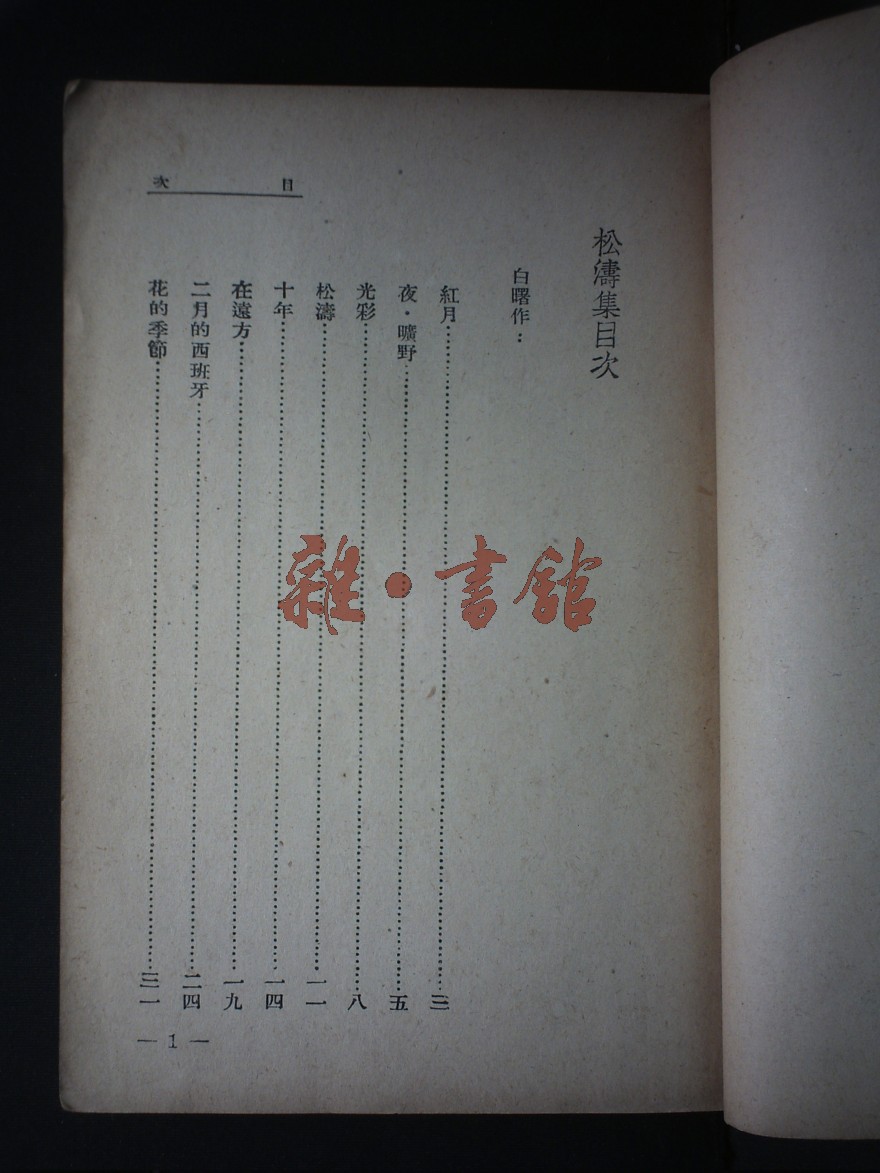 目次
松濤集目次
白曙作：
紅月…………三
夜·曠野…………五
光彩…………八
松濤…………一一
十年…………一四
在遠方…………一九
二月的西班牙…………二四
花的季節…………三一
— 1 —
雜·書館